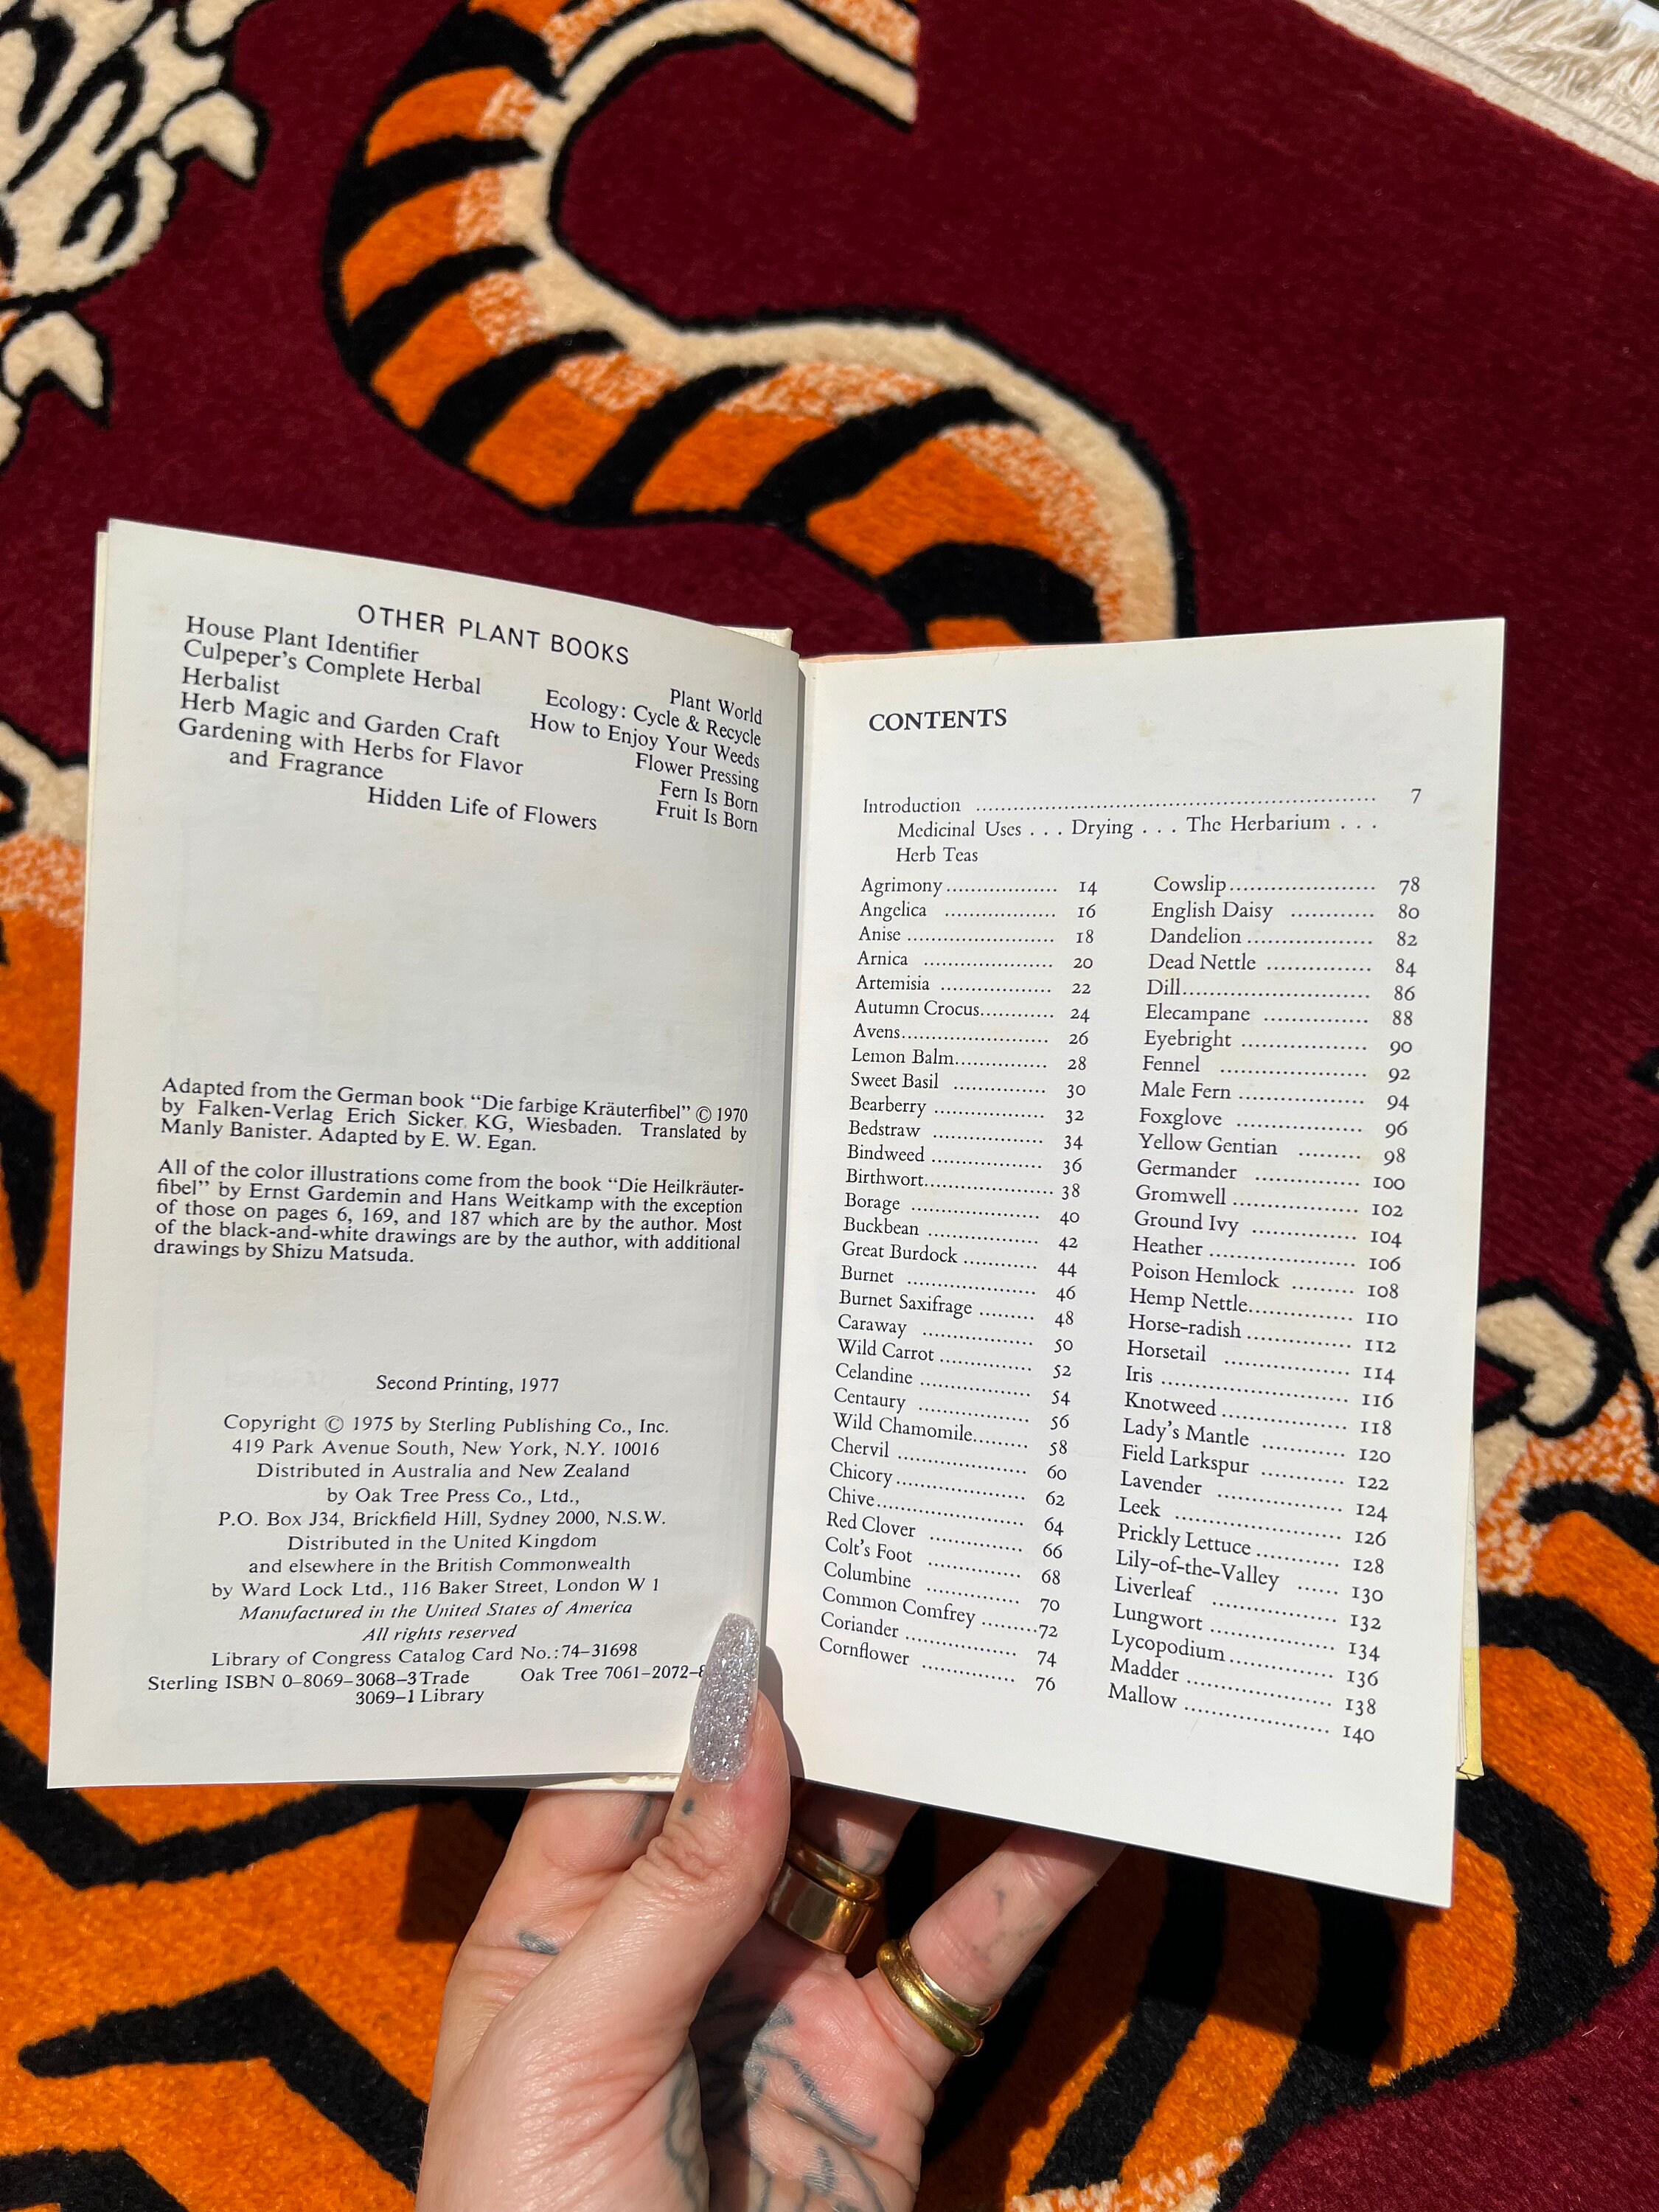 OTHER PLANT BOOKS
House Plant Identifier
Culpeper's Complete Herbal
Herbalist
Herb Magic and Garden Craft
Gardening with Herbs for Flavor
and Fragrance
Hidden Life of Flowers
Plant World
Ecology: Cycle & Recycle
How to Enjoy Your Weeds
Flower Pressing
Fern Is Born
Fruit Is Born
Adapted from the German book “Die farbige Kräuterfibel” © 1970
by Falken-Verlag Erich Sicker KG, Wiesbaden. Translated by
Manly Banister. Adapted by E. W. Egan.
All of the color illustrations come from the book “Die Heilkräuter-
fibel” by Ernst Gardemin and Hans Weitkamp with the exception
of those on pages 6, 169, and 187 which are by the author. Most
of the black-and-white drawings are by the author, with additional
drawings by Shizu Matsuda.
Second Printing, 1977
Copyright © 1975 by Sterling Publishing Co., Inc.
419 Park Avenue South, New York, N.Y. 10016
Distributed in Australia and New Zealand
by Oak Tree Press Co., Ltd.,
P.O. Box J34, Brickfield Hill, Sydney 2000, N.S.W.
Distributed in the United Kingdom
and elsewhere in the British Commonwealth
by Ward Lock Ltd., 116 Baker Street, London W 1
Manufactured in the United States of America
All rights reserved
Library of Congress Catalog Card No.: 74-31698
Sterling ISBN 0-8069-3068-3 Trade Oak Tree 7061-2072-
3069-1 Library
CONTENTS
Introduction .......... 7
Medicinal Uses . . . Drying . . . The Herbarium . . .
Herb Teas
Agrimony .......... 14
Angelica .......... 16
Anise .......... 18
Arnica .......... 20
Artemisia .......... 22
Autumn Crocus .......... 24
Avens .......... 26
Lemon Balm .......... 28
Sweet Basil .......... 30
Bearberry .......... 32
Bedstraw .......... 34
Bindweed .......... 36
Birthwort .......... 38
Borage .......... 40
Buckbean .......... 42
Great Burdock .......... 44
Burnet .......... 46
Burnet Saxifrage .......... 48
Caraway .......... 50
Wild Carrot .......... 52
Celandine .......... 54
Centaury .......... 56
Wild Chamomile .......... 58
Chervil .......... 60
Chicory .......... 62
Chive .......... 64
Red Clover .......... 66
Colt's Foot .......... 68
Columbine .......... 70
Common Comfrey .......... 72
Coriander .......... 74
Cornflower .......... 76
Cowslip .......... 78
English Daisy .......... 80
Dandelion .......... 82
Dead Nettle .......... 84
Dill .......... 86
Elecampane .......... 88
Eyebright .......... 90
Fennel .......... 92
Male Fern .......... 94
Foxglove .......... 96
Yellow Gentian .......... 98
Germander .......... 100
Gromwell .......... 102
Ground Ivy .......... 104
Heather .......... 106
Poison Hemlock .......... 108
Hemp Nettle .......... 110
Horse-radish .......... 112
Horsetail .......... 114
Iris .......... 116
Knotweed .......... 118
Lady's Mantle .......... 120
Field Larkspur .......... 122
Lavender .......... 124
Leek .......... 126
Prickly Lettuce .......... 128
Lily-of-the-Valley .......... 130
Liverleaf .......... 132
Lungwort .......... 134
Lycopodium .......... 136
Madder .......... 138
Mallow .......... 140